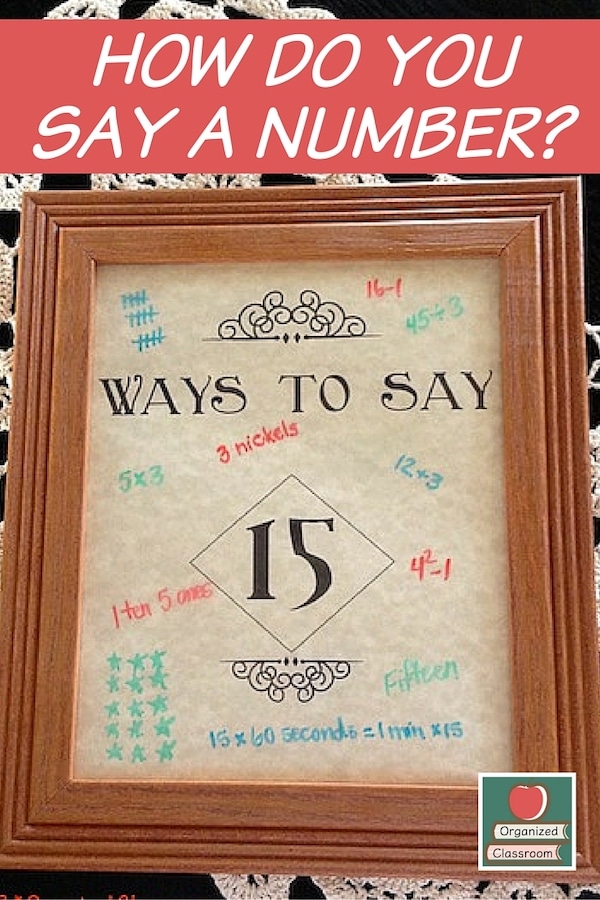 HOW DO YOU
SAY A NUMBER?
16-1
45÷3
WAYS TO SAY
3 nickels
5x3
12+3
15
4²-1
1 ten 5 ones
Fifteen
15 x 60 seconds = 1 min x 15
Organized
Classroom